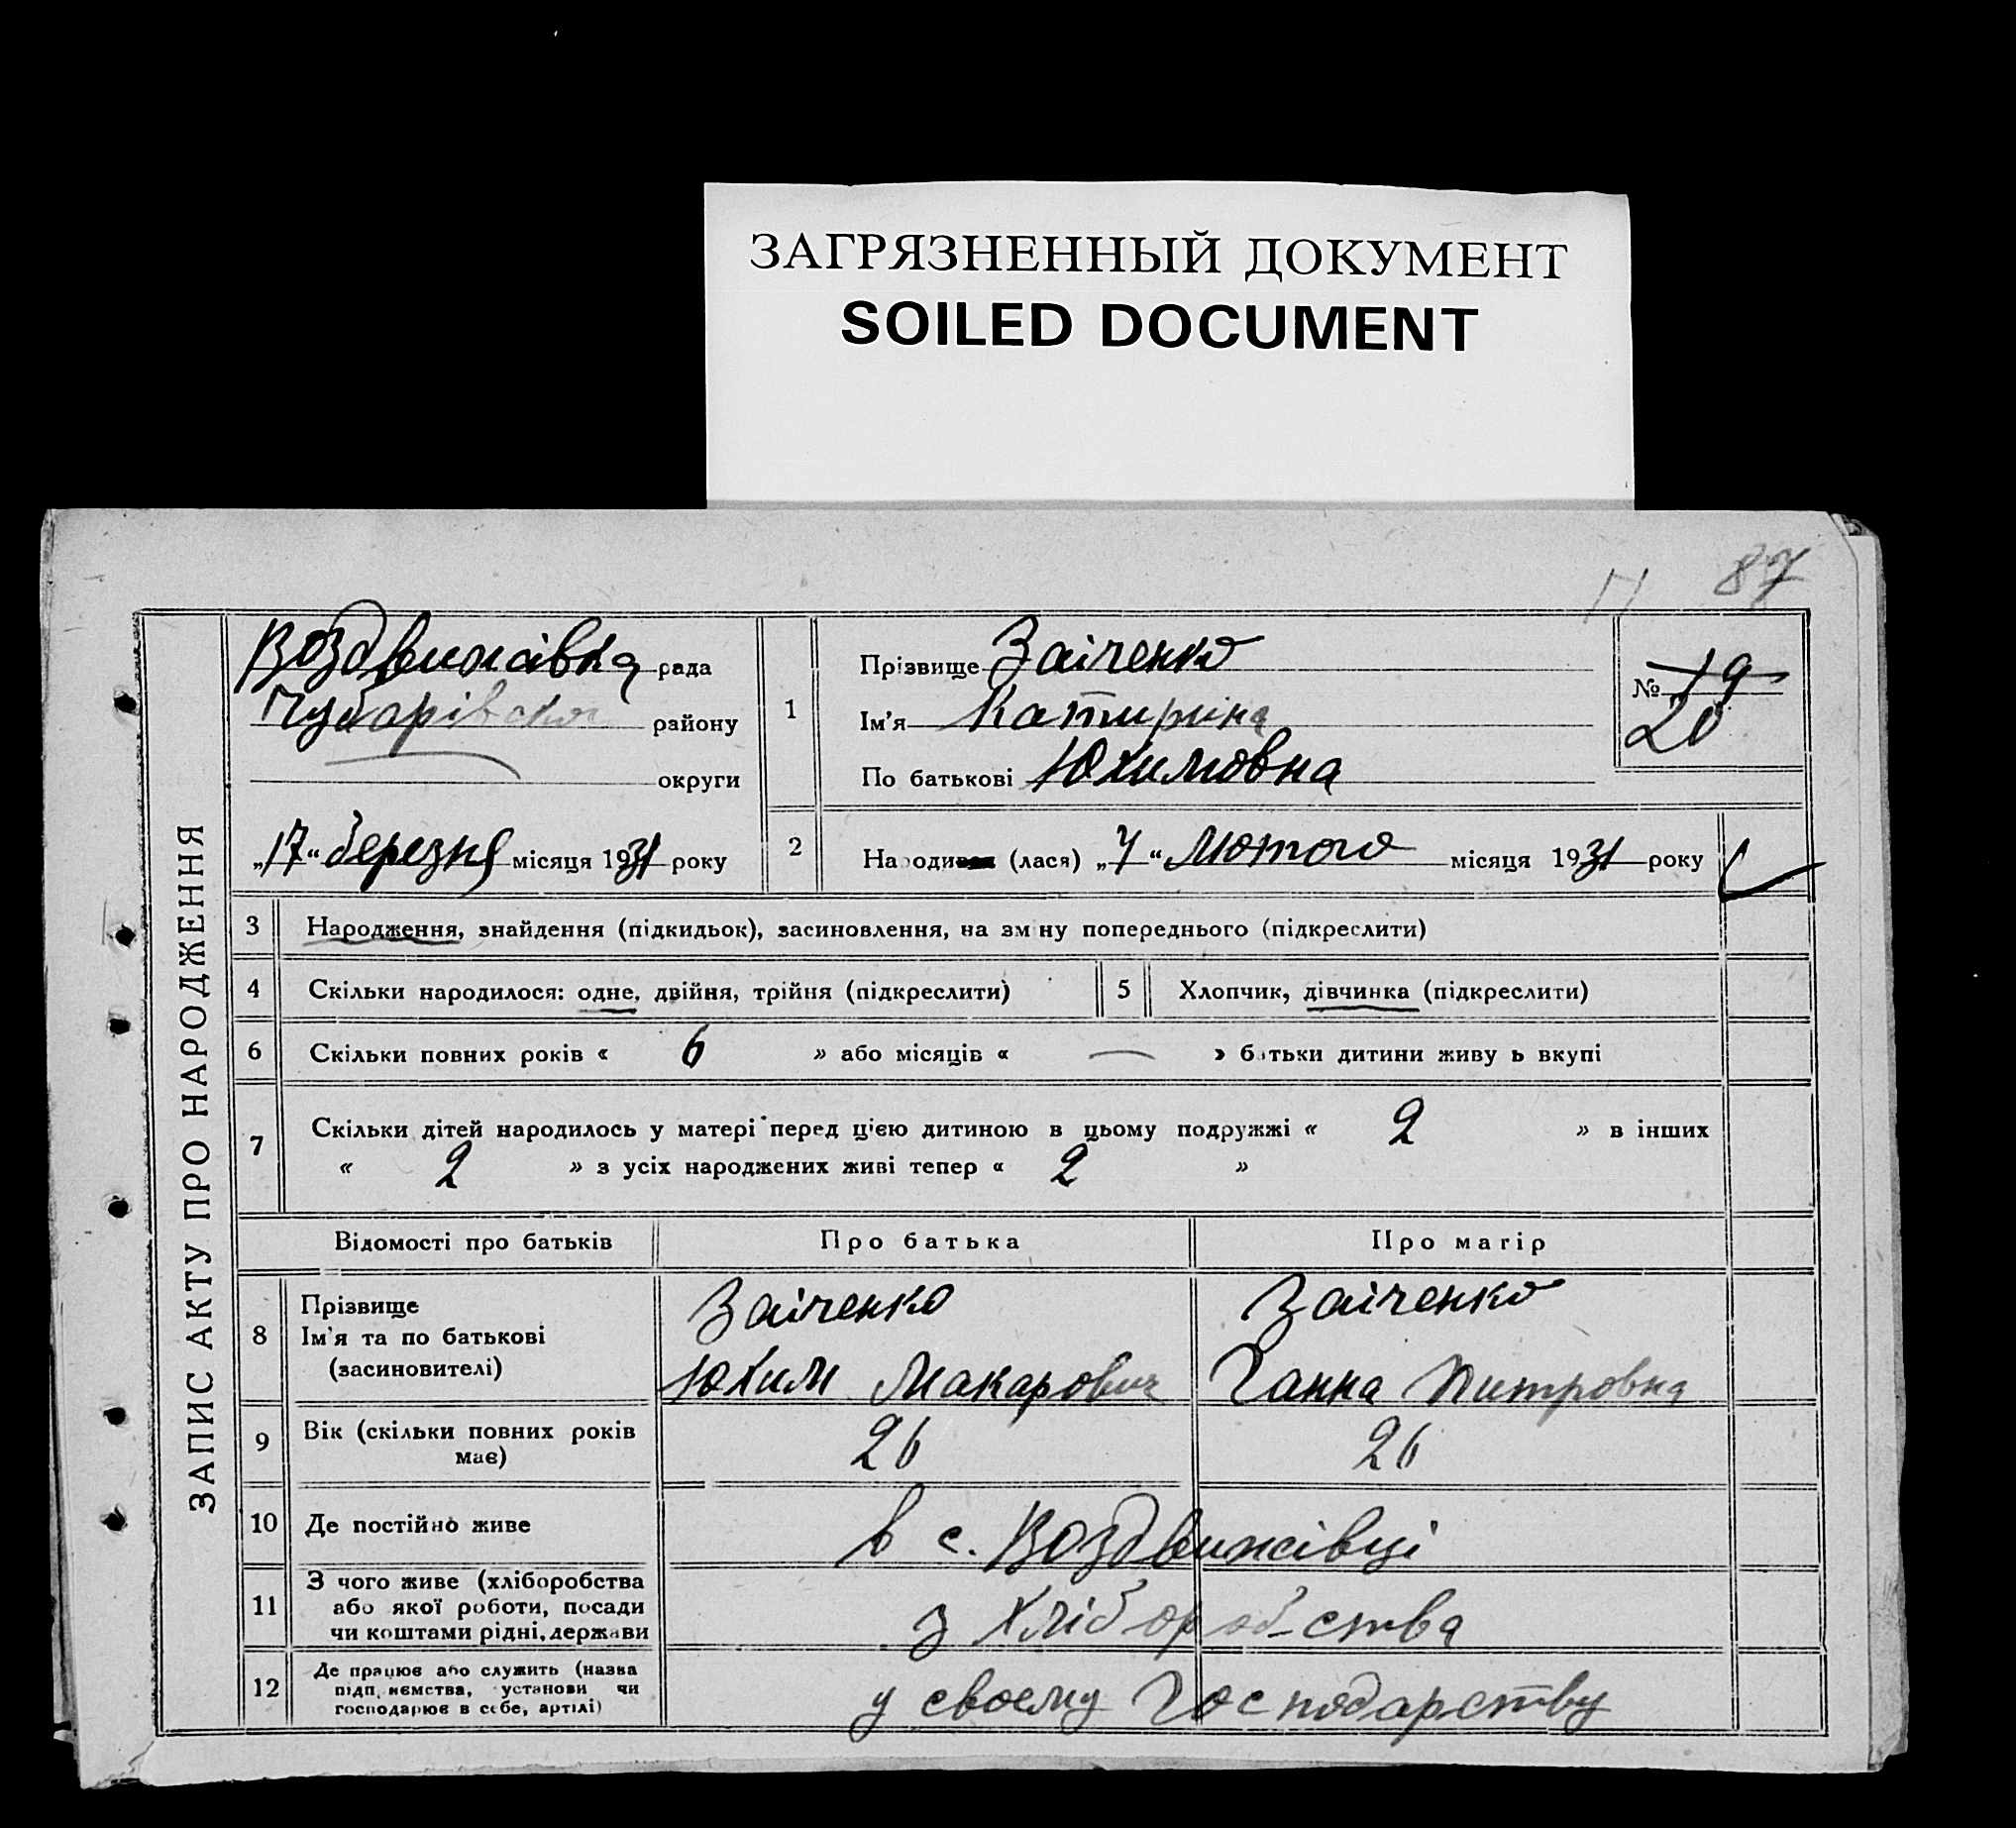 ЗАГРЯЗНЕННЫЙ ДОКУМЕНТ
SOILED DOCUMENT
87
ЗАПИС АКТУ ПРО НАРОДЖЕННЯ
Воздвижівка рада
Чубарівском району
округи
„17“ березня місяця 1931 року
1
Прізвище Заіченко
Ім'я Катирина
По батькові Юхимовна
№ 19
20
2 Народи (лася) „7“ Лютого місяця 1931 року
3 Народження, знайдення (підкидьок), засиновлення, на зміну попереднього (підкреслити)
4 Скільки народилося: одне, двійня, трійня (підкреслити) 5 Хлопчик, дівчинка (підкреслити)
6 Скільки повних років « 6 » або місяців « — » батьки дитини живу ь вкупі
7 Скільки дітей народилось у матері перед цією дитиною в цьому подружжі « 2 » в інших
« 2 » з усіх народжених живі тепер « 2 »
Відомості про батьків Про батька Про матір
8 Прізвище Заіченко Заіченко
Ім'я та по батькові
(засиновителі) Юхим Макарович Ганна Питровна
9 Вік (скільки повних років має) 26 26
10 Де постійно живе в с. Воздвижівці
11 З чого живе (хліборобства
або якої роботи, посади з хліборобства
чи коштами рідні, держави
12 Де працює або служить (назва
підп иємства, установи чи у своему господарству
господарює в себе, артілі)